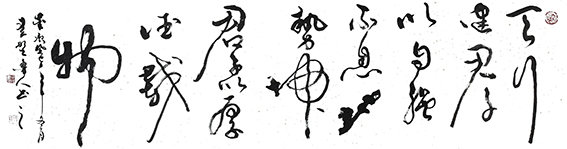 天行
健君子
以自強
不息地
勢坤
君子以厚
德載
物